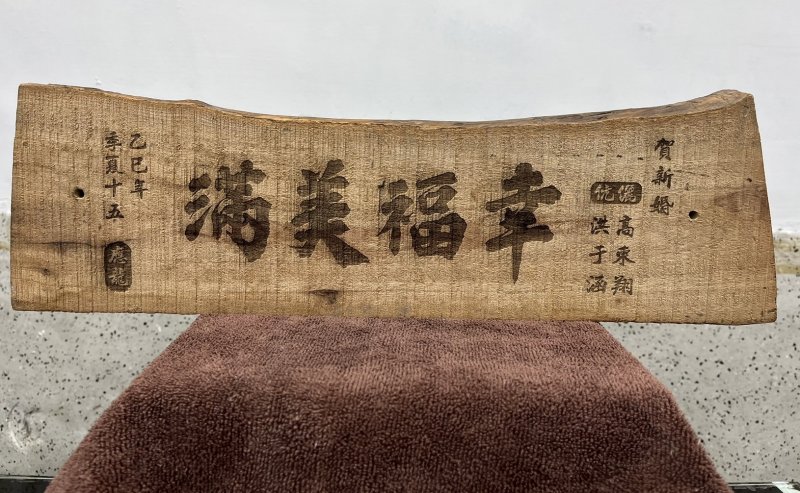 賀新婚
伉儷
高東翔
洪于涵
幸福美滿
乙巳年
季夏十五
應龍